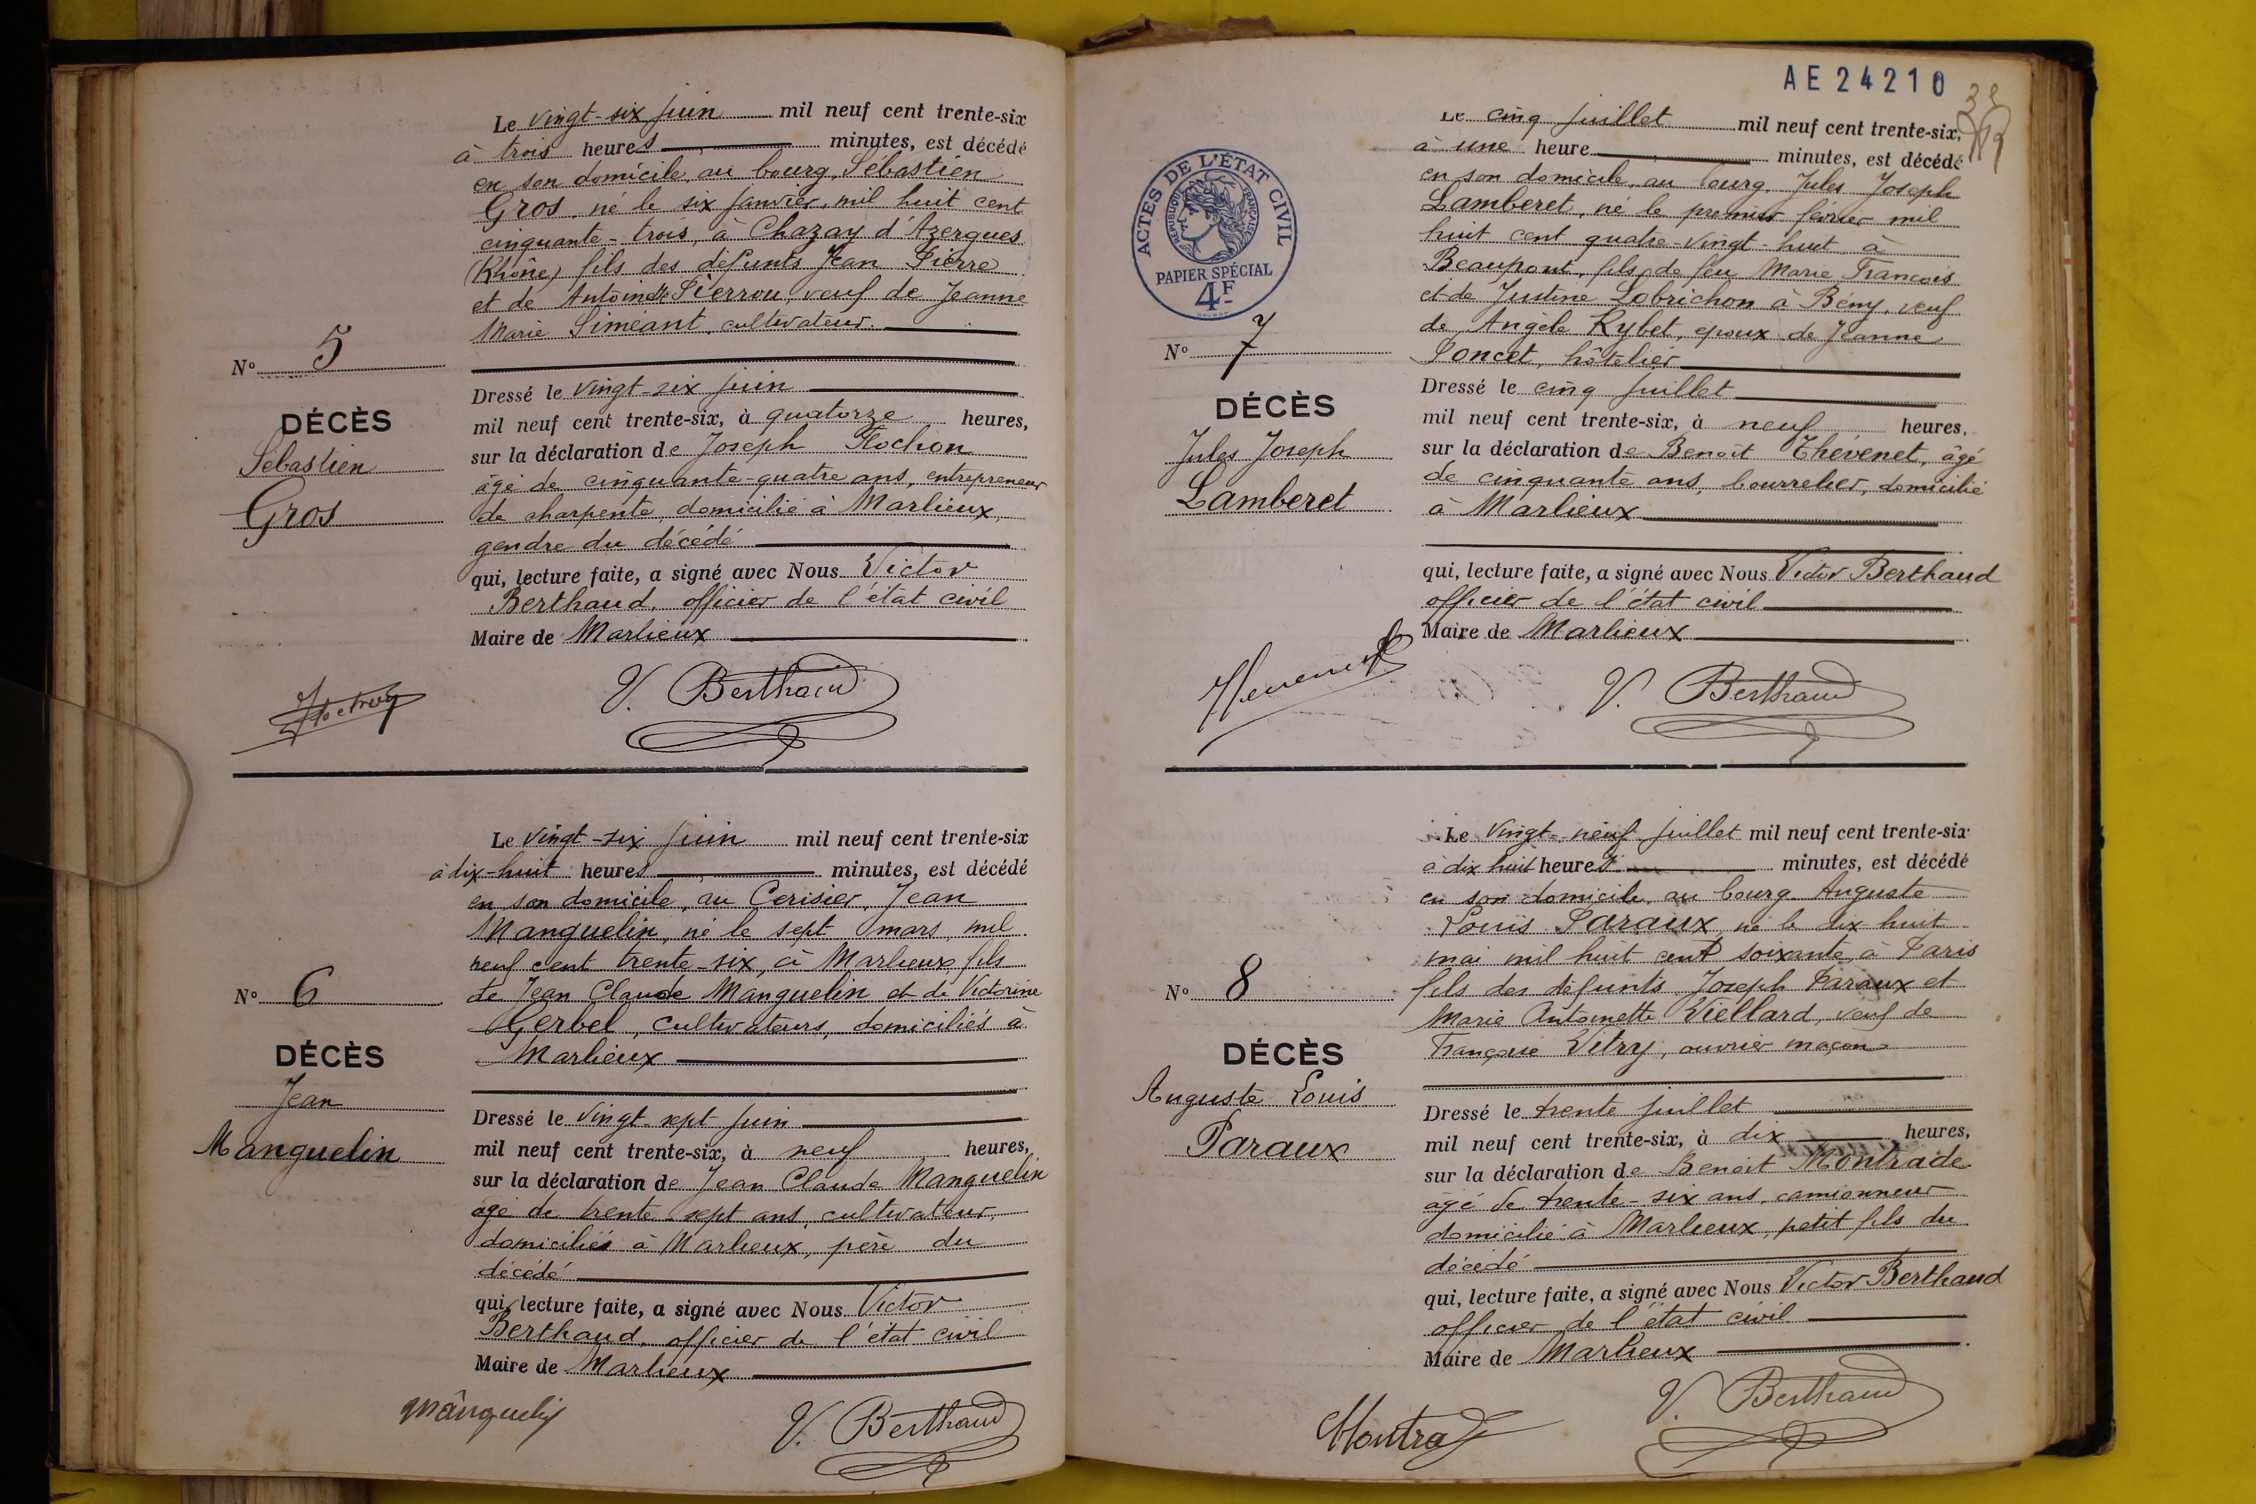 Le vingt-six juin mil neuf cent trente-six
à trois heures minutes, est décédé
en son domicile, au bourg, Sébastien
Gros, né le six janvier, mil huit cent
cinquante-trois, à Chazay d'Azergues
(Rhône) fils des défunts Jean Pierre
et de Antoinette Pierrou, veuf de Jeanne
Marie Siméant, cultivateur.
N° 5
DÉCÈS
Sébastien
Gros
Dressé le vingt-six juin
mil neuf cent trente-six, à quatorze heures,
sur la déclaration de Joseph Flochon
âgé de cinquante-quatre ans, entrepreneur
de charpente, domicilié à Marlieux,
gendre du décédé
qui, lecture faite, a signé avec Nous Victor
Berthaud, officier de l'état civil
Maire de Marlieux
V. Berthaud
Le vingt-six juin mil neuf cent trente-six
à dix-huit heures minutes, est décédé
en son domicile, au Cerisier, Jean
Manguelin, né le sept mars, mil
neuf cent trente-six, à Marlieux, fils
de Jean Claude Manguelin et de Victorine
Gerbel, cultivateurs, domiciliés à
Marlieux
N° 6
DÉCÈS
Jean
Manguelin
Dressé le vingt-sept juin
mil neuf cent trente-six, à neuf heures,
sur la déclaration de Jean Claude Manguelin
âgé de trente-sept ans, cultivateur,
domiciliés à Marlieux, père du
décédé
qui, lecture faite, a signé avec Nous Victor
Berthaud, officier de l'état civil
Maire de Marlieux
Manguelin
V. Berthaud
AE24210
ACTES DE L'ÉTAT CIVIL
RÉPUBLIQUE FRANÇAISE
PAPIER SPÉCIAL
4F
Le cinq juillet mil neuf cent trente-six,
à une heure minutes, est décédé
en son domicile, au bourg, Jules Joseph
Lamberet, né le premier février mil
huit cent quatre-vingt-huit à
Beaupont, fils de feu Marie François
et de Justine Lobrichon à Bény, veuf
de Angèle Rybet, époux de Jeanne
Poncet, hôtelier
N° 7
DÉCÈS
Jules Joseph
Lamberet
Dressé le cinq juillet
mil neuf cent trente-six, à neuf heures,
sur la déclaration de Benoît Thévenet, âgé
de cinquante ans, bourrelier, domicilié
à Marlieux
qui, lecture faite, a signé avec Nous Victor Berthaud
officier de l'état civil
Maire de Marlieux
V. Berthaud
Le vingt-neuf juillet mil neuf cent trente-six
à dix huit heures minutes, est décédé
en son domicile, au bourg Auguste
Louis Paraux, né le dix huit
mai mil huit cent soixante, à Paris
fils des défunts Joseph Paraux et
Marie Antoinette Viellard, veuf de
Françoise Vitry, ouvrier maçon
N° 8
DÉCÈS
Auguste Louis
Paraux
Dressé le trente juillet
mil neuf cent trente-six, à dix heures,
sur la déclaration de Benoît Montrade
âgé de trente-six ans, camionneur
domicilié à Marlieux, petit fils du
décédé
qui, lecture faite, a signé avec Nous Victor Berthaud
officier de l'état civil
Maire de Marlieux
V. Berthaud